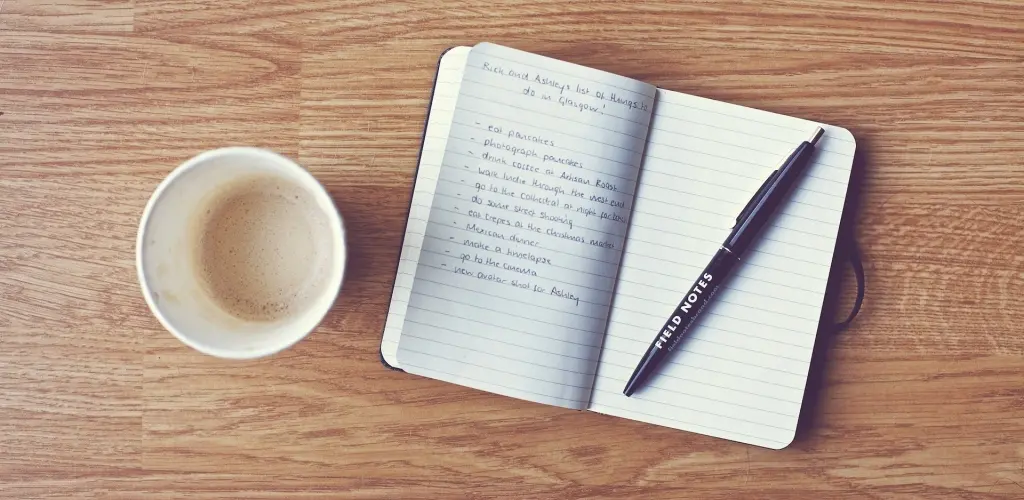 Rich and Ashleys list of things to
do in Glasgow!
- eat pancakes
- photograph pancakes
- drink coffee at Artisan Roast
- walk Indie through the west end
- go to the cathedral at night
- do some street shooting
- eat crepes at the Christmas market
- Mexican dinner
- make a timelapse
- go to the cinema
- new avatar shot for Ashley
FIELD NOTES